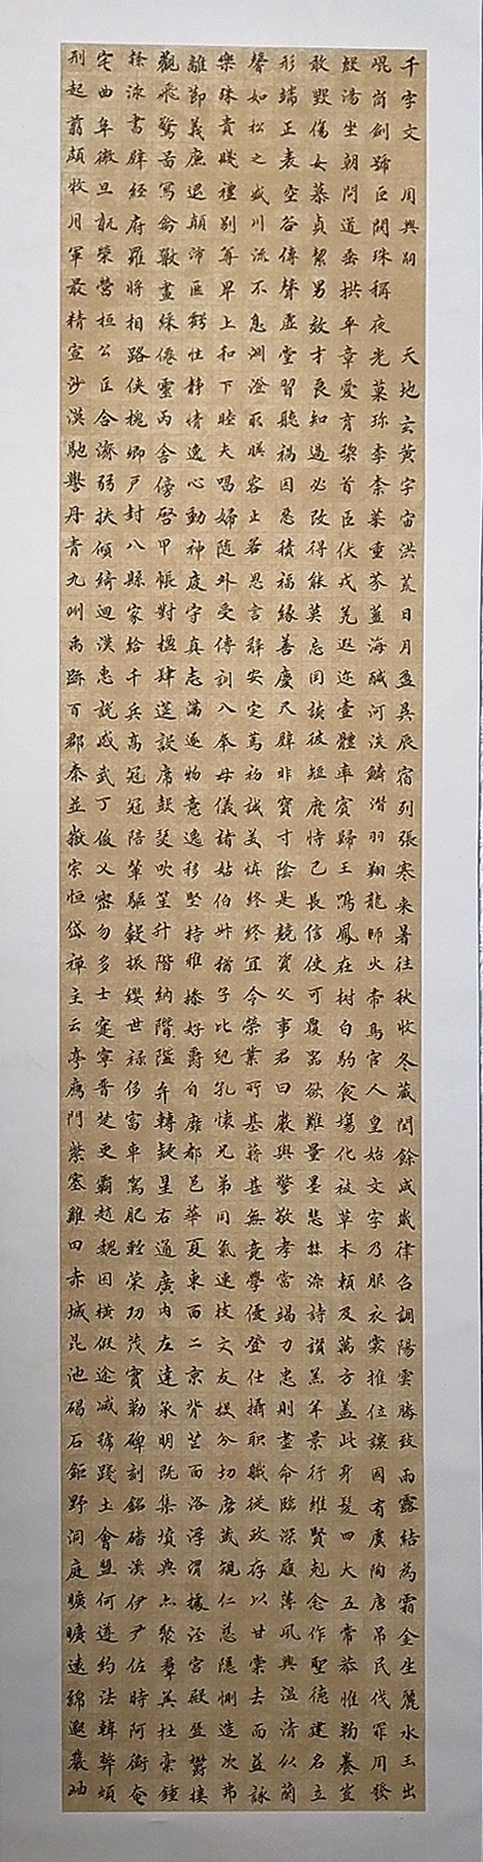 千字文 周興嗣 天地玄黃宇宙洪荒日月盈昃辰宿列張寒来暑往秋收冬藏閏餘成歲律呂調陽雲騰致雨露結為霜金生麗水玉出
崐崗劍號巨闕珠稱夜光菓珍李柰菜重芥薑海醎河淡鱗潛羽翔龍師火帝鳥官人皇始文字乃服衣裳推位讓國有虞陶唐吊民伐罪周發
殷湯坐朝問道垂拱平章愛育黎首臣伏戎羌遐迩壹體率賓歸王鳴鳳在树白駒食場化被草木賴及萬方盖此身髮四大五常恭惟鞠養豈
敢毀傷女慕貞絜男效才良知過必改得能莫忘罔談彼短靡恃己長信使可覆器欲難量墨悲絲染詩讃羔羊景行維賢剋念作聖德建名立
形端正表空谷傳聲虛堂習聽禍因惡積福緣善慶尺璧非寶寸陰是競資父事君曰嚴與警敬孝當竭力忠則盡命臨深履薄夙興溫清似蘭
馨如松之盛川流不息淵澄取暎容止若思言辭安定篤初誠美慎終終宜令榮業所基籍甚無竟學優登仕攝职職從政存以甘棠去而益詠
樂殊貴賤禮別尊卑上和下睦夫唱婦随外受傅訓入奉母儀諸姑伯叔猶子比兒孔懷兄弟同氣連枝交友投分切磨箴規仁慈隱惻造次弗
離節義廉退顛沛匪虧性静情逸心動神疲守真志滿逐物意逸移堅持雅操好爵自靡都邑華夏東西二京背芒面洛浮渭據涇宮殿盤欝樓
觀飛驚啚寫禽獸畫綵僊靈丙舍傍啓甲帳對楹肆筵設席鼓瑟吹笙升階納階陛弁轉疑星右通廣內左達承明既集墳典亦聚羣英杜稾鍾
隸漆書壁經府羅將相路俠槐卿户封八縣家給千兵高冠冠陪輦驅轂振纓世禄侈富車駕肥輕策功茂實勒碑刻銘磻溪伊尹佐時阿衡奄
宅曲阜微旦孰榮營桓公匡合濟弱扶傾綺迴漢惠說感武丁俊乂密勿多士寔寧晋楚更霸趙魏困横假途滅虢踐土會盟何遵約法韓弊煩
刑起翦頗牧用軍最精宣沙漠馳譽丹青九州禹跡百郡秦並嶽宗恒岱禪主云亭鴈門紫塞雞田赤城昆池碣石鉅野洞庭曠曠遠綿邈巖岫